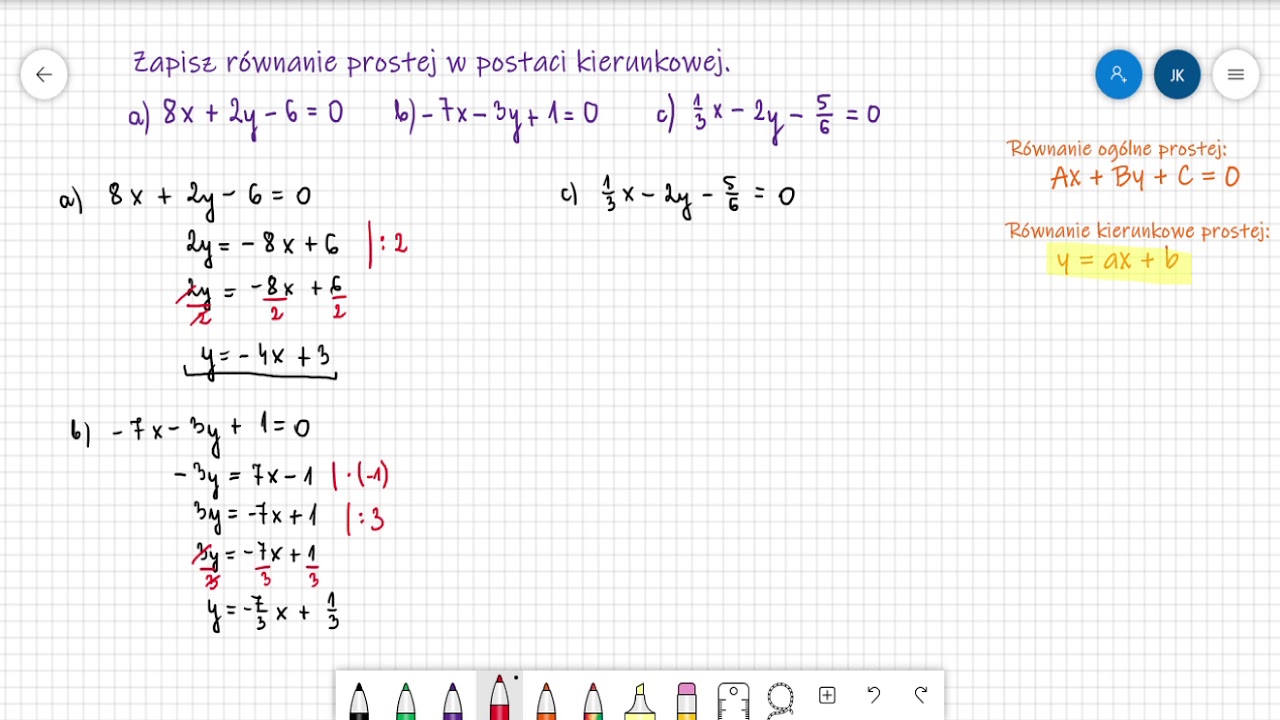 Zapisz równanie prostej w postaci kierunkowej.
a) 8x + 2y - 6 = 0 b) -7x - 3y + 1 = 0 c) 1/3 x - 2y - 5/6 = 0
JK
Równanie ogólne prostej:
Ax + By + C = 0
Równanie kierunkowe prostej:
y = ax + b
a) 8x + 2y - 6 = 0
2y = -8x + 6 | : 2
2y/2 = -8x/2 + 6/2
y = -4x + 3
b) -7x - 3y + 1 = 0
-3y = 7x - 1 | · (-1)
3y = -7x + 1 | : 3
3y/3 = -7x/3 + 1/3
y = -7/3 x + 1/3
c) 1/3 x - 2y - 5/6 = 0